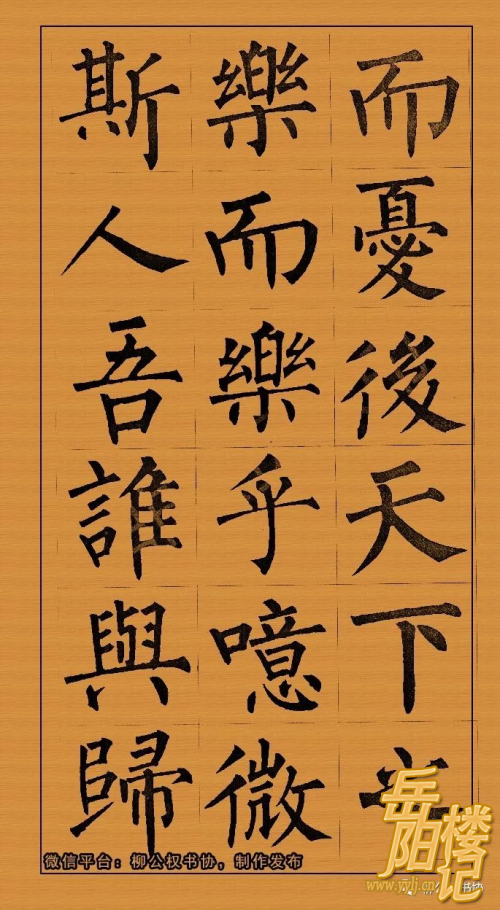 而憂後天下之
樂而樂乎噫微
斯人吾誰與歸
微信平台：柳公权书协，制作发布
岳阳楼记
www.yylj.cn